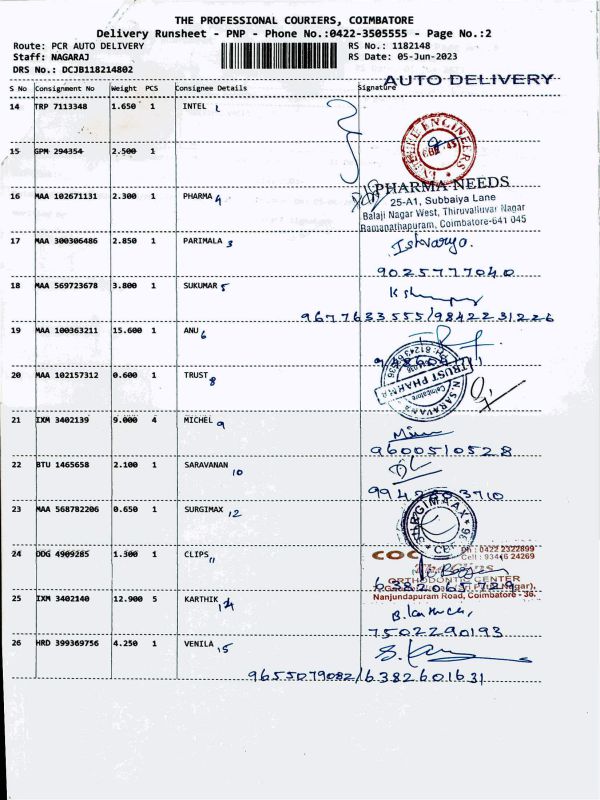 THE PROFESSIONAL COURIERS, COIMBATORE
Delivery Runsheet - PNP - Phone No.:0422-3505555 - Page No.:2
Route: PCR AUTO DELIVERY RS No.: 1182148
Staff: NAGARAJ RS Date: 05-Jun-2023
DRS No.: DCJB118214802
AUTO DELIVERY
S No Consignment No Weight PCS Consignee Details Signature
14 TRP 7113348 1.650 1 INTEL 1
ENGINEERS
15 GPM 294354 2.500 1
16 MAA 102671131 2.300 1 PHARMA 4
PHARMA NEEDS
25-A1, Subbaiya Lane
Balaji Nagar West, Thiruvalluvar Nagar
Ramanathapuram, Coimbatore-641 045
17 MAA 300306486 2.850 1 PARIMALA 3
Ishvarya.
9025777040
18 MAA 569723678 3.800 1 SUKUMAR 5
9677633555/9842231226
19 MAA 100363211 15.600 1 ANU 6
20 MAA 102157312 0.600 1 TRUST 8
TRUST PHARMA
Coimbatore
N. SARAVANA
21 IXM 3402139 9.000 4 MICHEL 9
9600510528
22 BTU 1465658 2.100 1 SARAVANAN 10
9942603710
23 MAA 568782206 0.650 1 SURGIMAX 12
SURGIMAAX
CBE
24 DDG 4909285 1.500 1 CLIPS 11
COC Ph : 0422 2322899
Cell : 93446 24269
The Clips
ORTHODONTIC CENTER
Nanjundapuram Road, Coimbatore - 36.
6382065729
25 IXM 3402140 12.900 5 KARTHIK 14
7502290193
26 HRD 399369756 4.250 1 VENILA 15
9655079082/6382601631